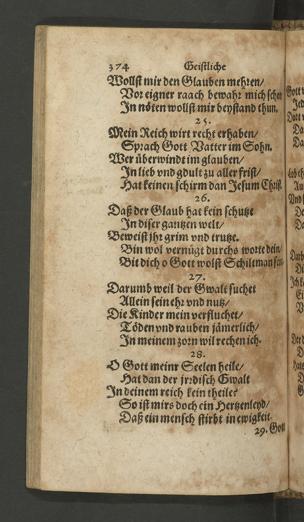 374 Geistliche
Wollst mir den Glauben mehren/
Vor eigner raach bewahr mich
In nöten wollst mir beystand thun.
25.
Mein Reich wirt recht erhaben/
Sprach Gott Vatter im Sohn.
Wer überwindt im glauben/
In lieb vnd gdult zu aller frist/
Hat keinen schirm dan Jesum Christ
26.
Daß der Glaub hat kein schutze
In diser gantzen welt/
Beweist jhr grim vnd trutze.
Bin wol vernügt durchs worte dein
Bit dich o Gott wolst Schiltman
27.
Darumb weil der Gwalt suchet
Allein sein ehr vnd nutz/
Die Kinder mein verfluchet/
Töden vnd rauben jämerlich/
In meinem zorn wil rechen ich.
28.
O Gott meinr Seelen heile/
Hat dan der jrdisch Gwalt
In deinem reich kein theile?
So ist mirs doch ein Hertzenleyd/
Daß ein mensch stirbt in ewigkeit.
29. Gott